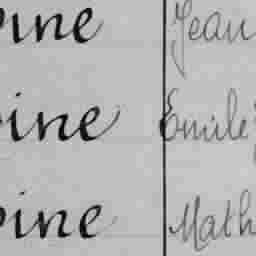 ine Jean
ine Emile
ine Math